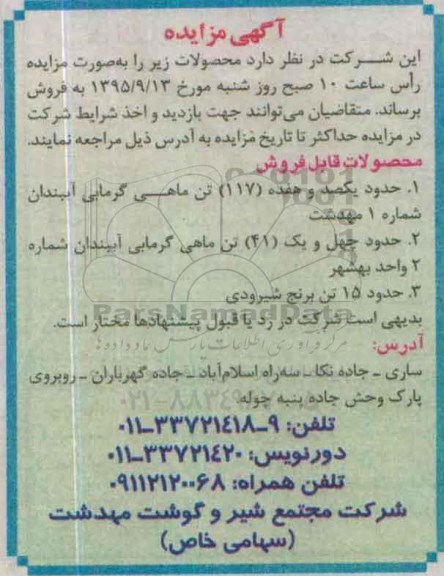 آگهی مزایده
این شرکت در نظر دارد محصولات زیر را به‌صورت مزایده
رأس ساعت ۱۰ صبح روز شنبه مورخ ۱۳۹۵/۹/۱۳ به فروش
برساند. متقاضیان می‌توانند جهت بازدید و اخذ شرایط شرکت
در مزایده حداکثر تا تاریخ مزایده به آدرس ذیل مراجعه نمایند.
محصولات قابل فروش
۱. حدود یکصد و هفده (۱۱۷) تن ماهی گرمابی آببندان
شماره ۱ مهدشت
۲. حدود چهل و یک (۴۱) تن ماهی گرمابی آببندان شماره
۲ واحد بهشهر
۳. حدود ۱۵ تن برنج شیرودی
ParsNamadData
بدیهی است شرکت در رد یا قبول پیشنهادها مختار است.
آدرس:
ساری ـ جاده نکا ـ سه‌راه اسلام‌آباد ـ جاده گهرباران ـ روبروی
پارک وحش جاده پنبه چوله
۰۲۱-۸۸۳۴۹
تلفن: ۹ـ۳۳۷۲۱۴۱۸ـ۰۱۱
دورنویس: ۳۳۷۲۱۴۲۰ـ۰۱۱
تلفن همراه: ۰۹۱۱۲۱۲۰۰۶۸
شرکت مجتمع شیر و گوشت مهدشت
(سهامی خاص)